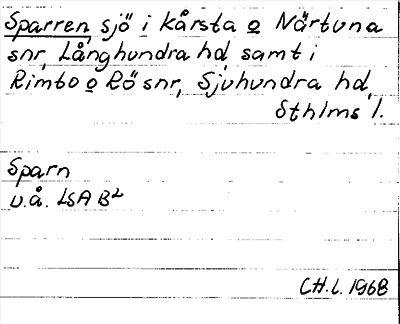 Sparren sjö i Kårsta o Närtuna
snr, Långhundra hd samt i
Rimbo o Rö snr, Sjuhundra hd,
Sthlms l.
Sparn
u.å. LSA B2
C.H.L. 1968